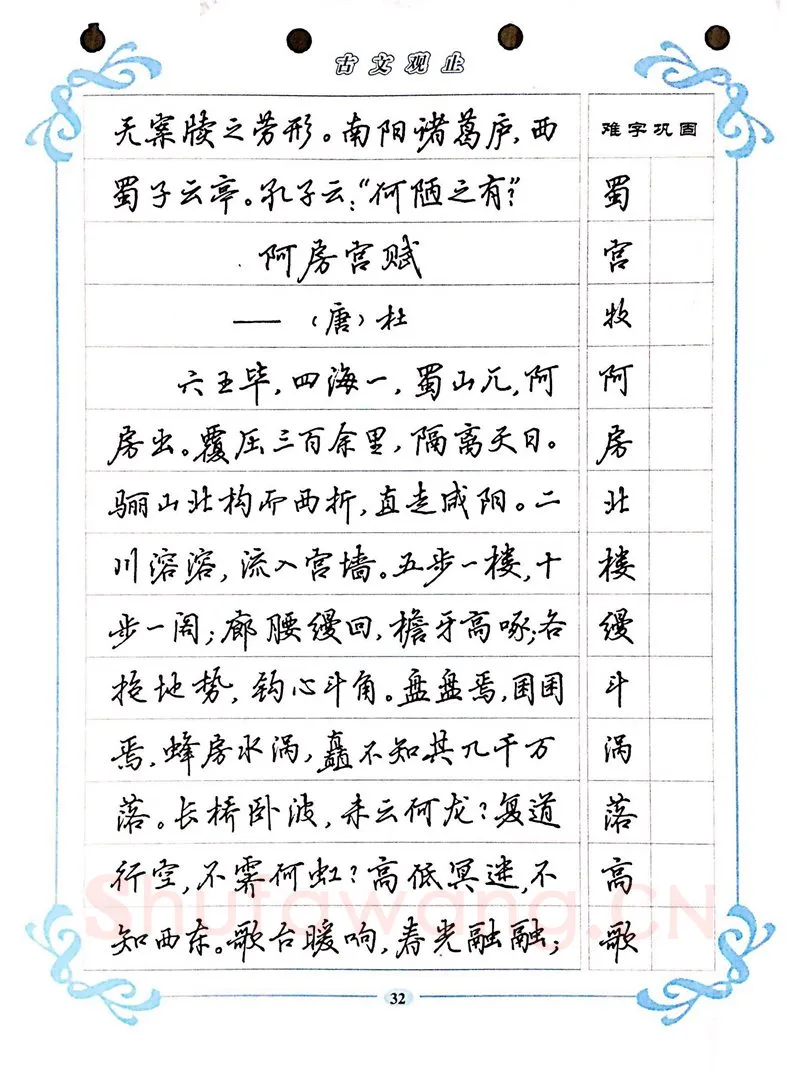 古文观止
无案牍之劳形。南阳诸葛庐，西
蜀子云亭。孔子云：“何陋之有？”
阿房宫赋
——（唐）杜
六王毕，四海一，蜀山兀，阿
房出。覆压三百余里，隔离天日。
骊山北构而西折，直走咸阳。二
川溶溶，流入宫墙。五步一楼，十
步一阁；廊腰缦回，檐牙高啄；各
抱地势，钩心斗角。盘盘焉，囷囷
焉，蜂房水涡，矗不知其几千万
落。长桥卧波，未云何龙？复道
行空，不霁何虹？高低冥迷，不
知西东。歌台暖响，春光融融；
难字巩固
蜀
宫
牧
阿
房
北
楼
缦
斗
涡
落
高
歌
Shufawang.CN
32